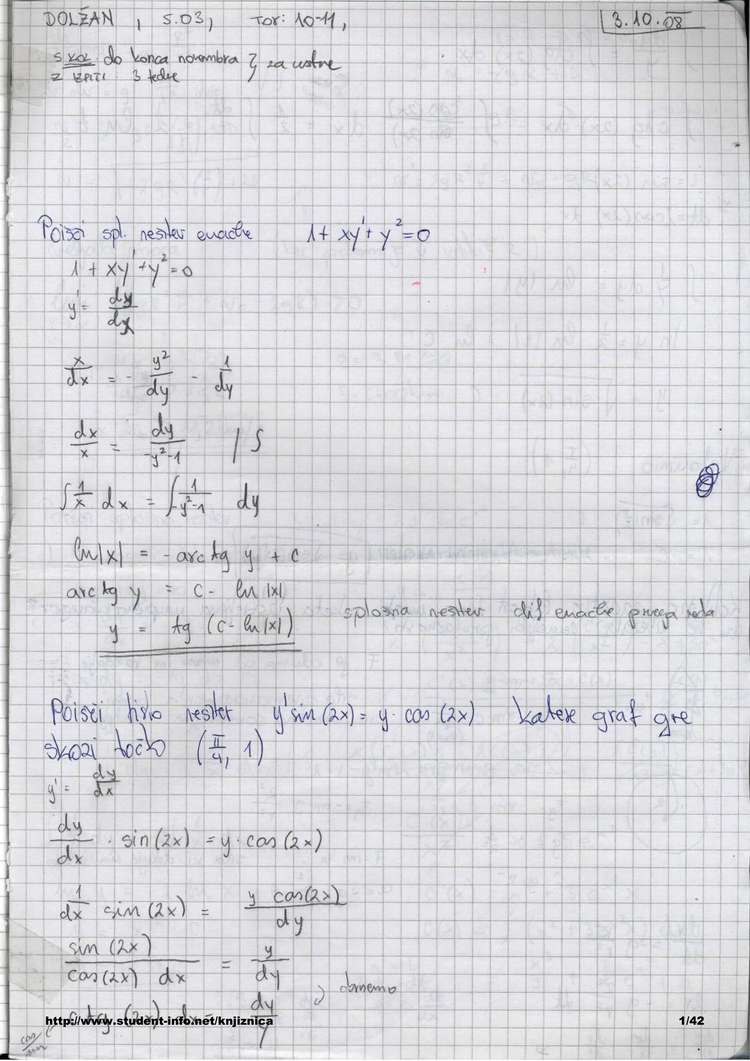 DOLŽAN, 5.03, TOR: 10-11, 3.10.08
5 KOL do konca novembra } za ustne
2 IZPITI 3 tedne
Poišči spl. rešitev enačbe 1 + xy' + y² = 0
1 + xy' + y² = 0
y' = dy/dx
x/dx = - y²/dy - 1/dy
dx/x = dy/-y²-1 / ∫
∫ 1/x dx = ∫ 1/-y²-1 dy
ln|x| = -arctg y + c
arctg y = c - ln|x|
y = tg (c - ln|x|) splošna rešitev dif enačbe prvega reda
Poišči tisto rešitev y' sin(2x) = y · cos(2x) katere graf gre
skozi točko (π/4, 1)
y' = dy/dx
dy/dx · sin(2x) = y · cos(2x)
1/dx sin(2x) = y cos(2x)/dy
sin(2x)/cos(2x) dx = y/dy
ctg (2x) dx = dy/y } obrnemo
cos/sin
http://www.student-info.net/knjiznica 1/42